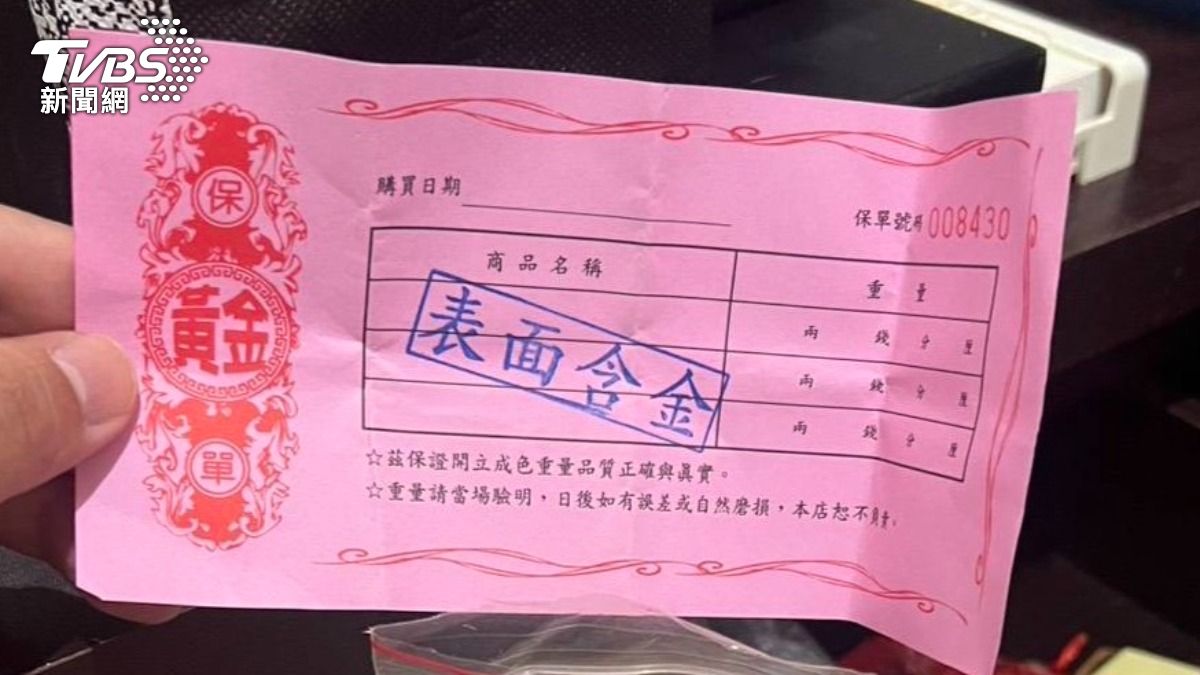 TVBS
新聞網
保
黃金
單
購買日期
保單號碼 008430
商品名稱 重量
兩 錢 分 厘
兩 錢 分 厘
兩 錢 分 厘
表面含金
☆茲保證開立成色重量品質正確與真實。
☆重量請當場驗明，日後如有誤差或自然磨損，本店恕不負責。